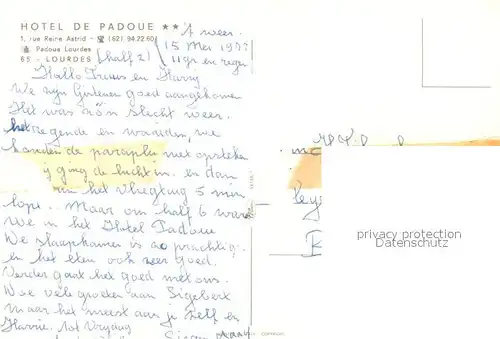 HOTEL DE PADOUE ★★
't weer.
1, rue Reine Astrid - ☎ (62) 94.22.60
15 Mei
Padoue Lourdes (half 2)
11 gr en regen
65 - LOURDES
Hallo Truus en Harry
We zijn Gisteren goed aangekomen
Het was zo'n slecht weer.
het regende en waaiden, we
konden de paraplu niet opsteken
ging de lucht in. en dan
het vliegtuig 5 min
lopen. Maar om half 6 waren
We in het Hotel Padoue
De slaapkamer is zo prachtig.
en het eten ook zeer goed.
Verder gaat het goed met ons.
Doe vele groeten aan Sigebert
maar het meest aan je zelf en
Harrie. tot Vrijdag
privacy protection
Datenschutz